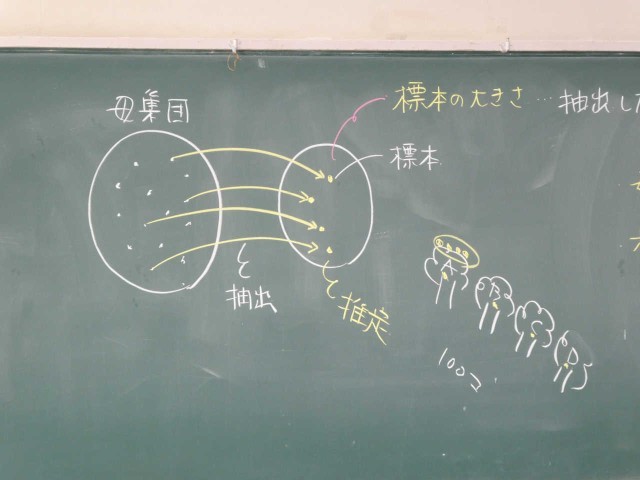 母集団
標本の大きさ…抽出した
標本
抽出
推定
A
B
C
D
100コ